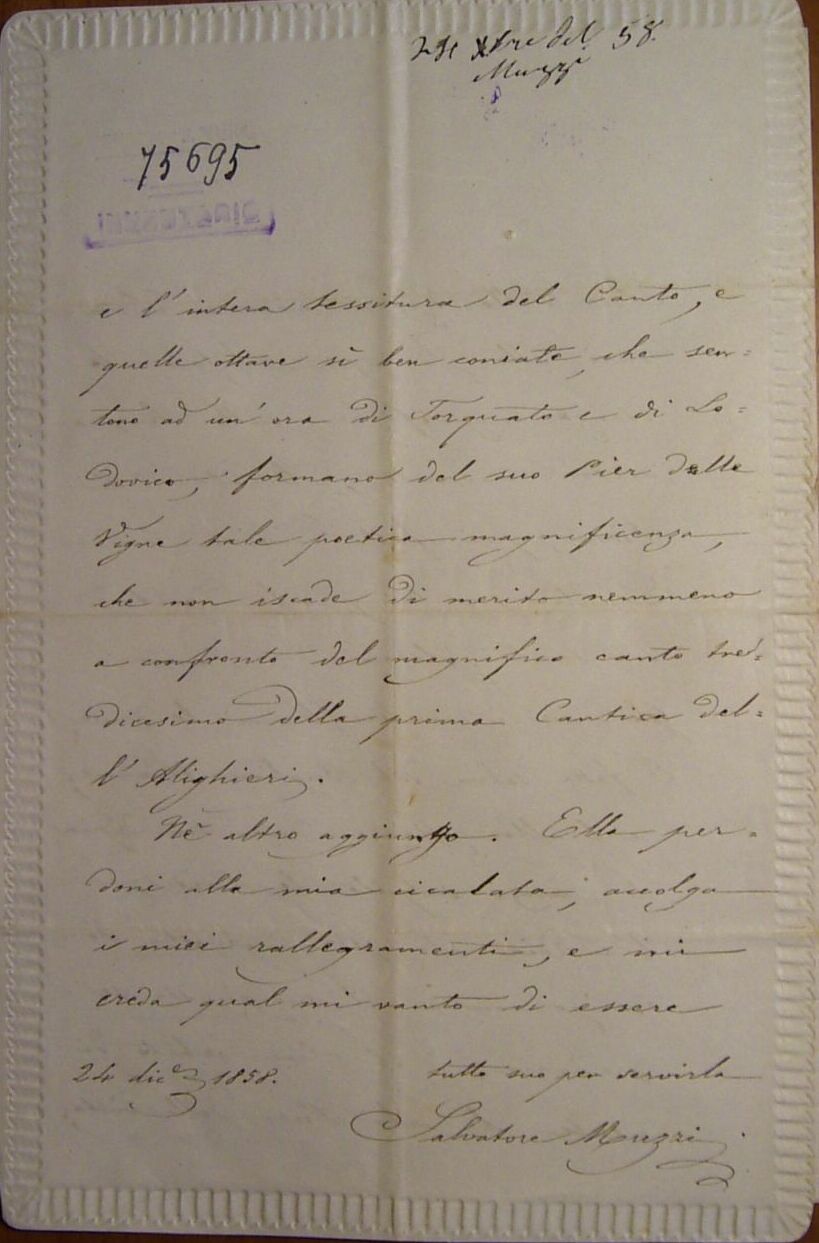 24 Xbre del 58.
Muzzi
75695
e l'intera tessitura del Canto, e
quelle ottave sì ben coniate, che sen=
tono ad un'ora di Torquato e di Lo=
dovico, formano del suo Pier delle
Vigne tale poetica magnificenza,
che non iscade di merito nemmeno
a confronto del magnifico canto tre=
dicesimo della prima Cantica del=
l'Alighieri.
Nè altro aggiungo. Ella per=
doni alla mia cicalata, accolga
i miei rallegramenti, e mi
creda qual mi vanto di essere
24 dic.e 1858.
tutto suo per servirla
Salvatore Muzzi.